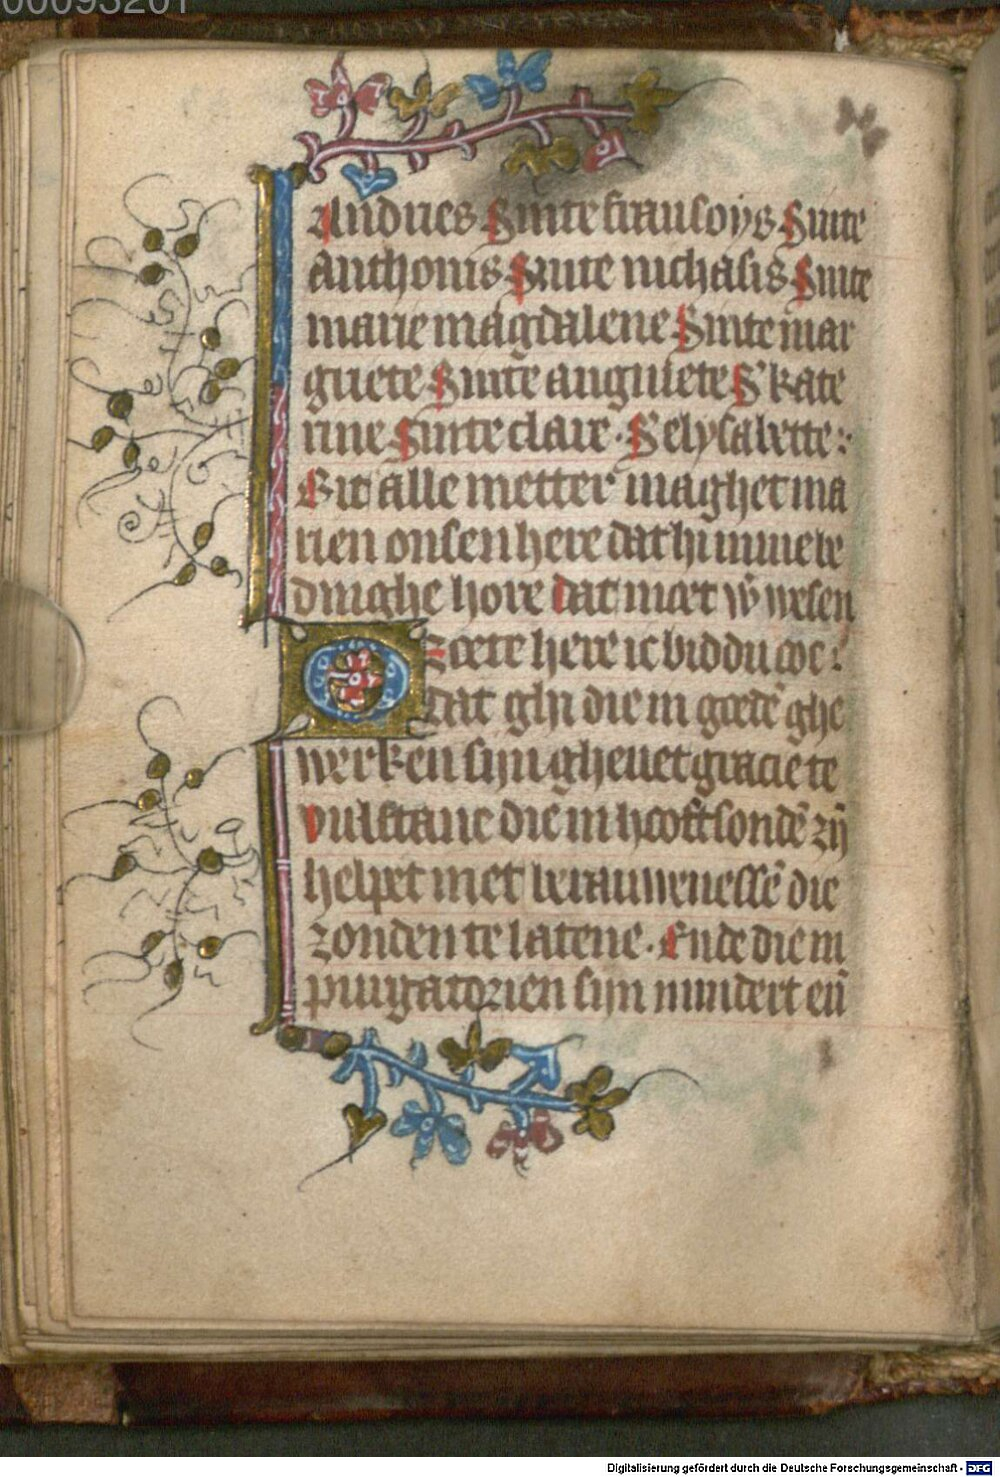 00093201
Andries Sinte fransoys Sinte
Anthonis Sinte nichasis Sinte
marie magdalene Sinte mar
griete Sinte angniete S' kate
rine Sinte claire · S elysabette :
Bid alle metter maghet ma
rien onsen here dat hi mi vele
dinghe hore dat niet w̄ wesen
O zoete here ic bidd u ooc :
dat ghi die in goedē ghe
werken sijn ghevet gracie te
vulstane die in hooftsondē zȳ
helpet met berauwenessē die
zonden te latene · Ende die in
purgatorien sijn mindert en̄
Digitalisierung gefördert durch die Deutsche Forschungsgemeinschaft - DFG